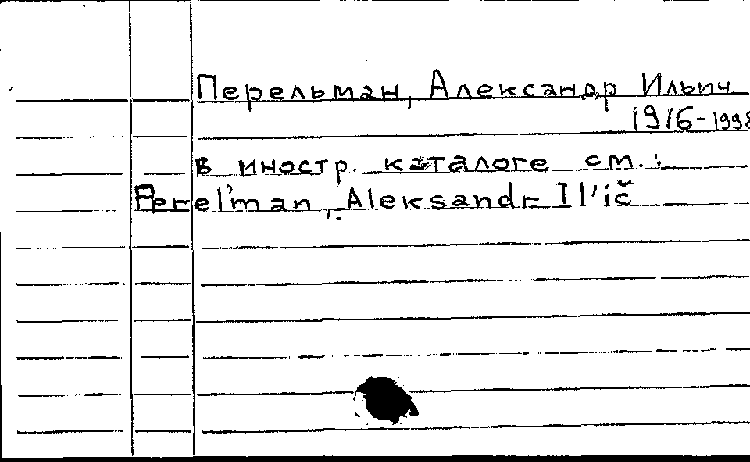 Перельман, Александр Ильич
1916-1998
в иностр. каталоге см.:
Perel'man, Aleksandr Il'ič